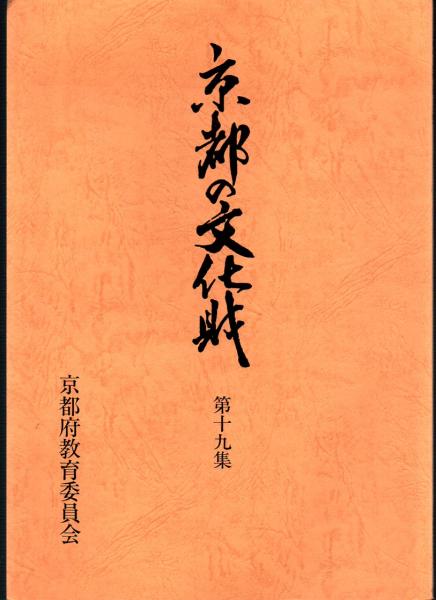 京都の文化財
第十九集
京都府教育委員会